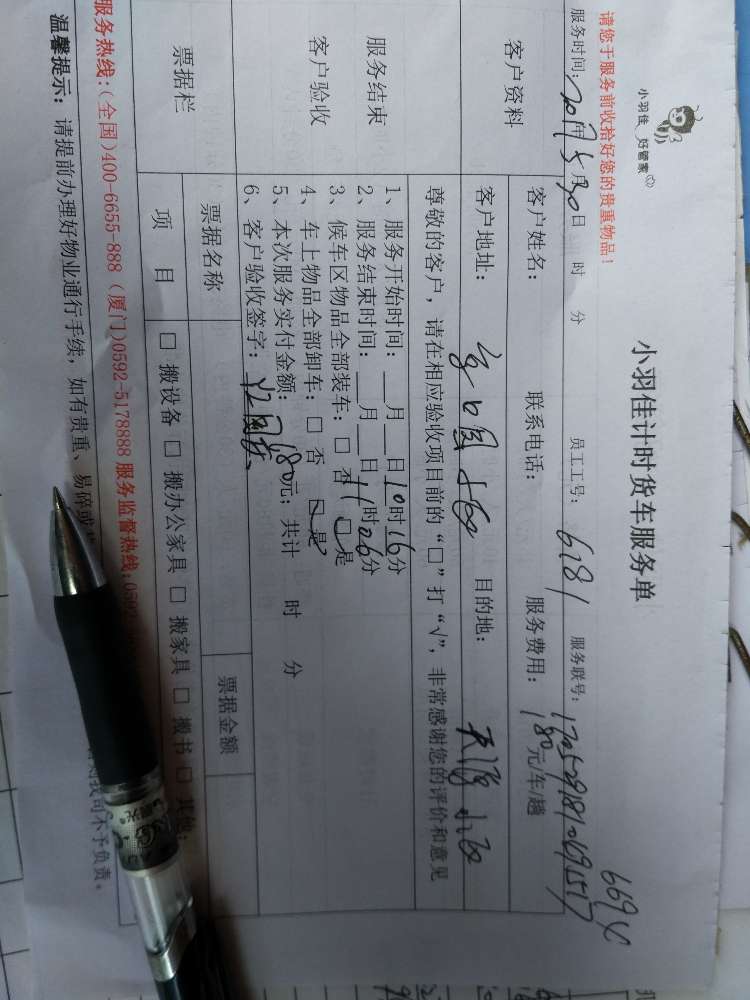 小羽佳 好管家
小羽佳计时货车服务单
669X
请您于服务前收拾好您的贵重物品！
服务时间： 年 5月30日 时 分 员工工号： 6181 服务联号：
客户资料
客户姓名： 联系电话： 服务费用： 180元车/趟
客户地址： 目的地：
尊敬的客户，请在相应验收项目前的“□”打“√”，非常感谢您的评价和意见
服务结束
客户验收
1、服务开始时间：___月___日10时16分
2、服务结束时间：___月___日11时26分
3、候车区物品全部装车：□ 否 □ 是
4、车上物品全部卸车：□ 否 □ 是
5、本次服务实付金额：180元；共计 时 分
6、客户验收签字：
票据栏
票据名称 票据金额
项 目
□ 搬设备 □ 搬办公家具 □ 搬家具 □ 搬书 □ 其他：
服务热线：(全国)400-6655-888 (厦门)0592-5178888 服务监督热线：0592
温馨提示：请提前办理好物业通行手续，如有贵重、易碎或
我司不予负责。